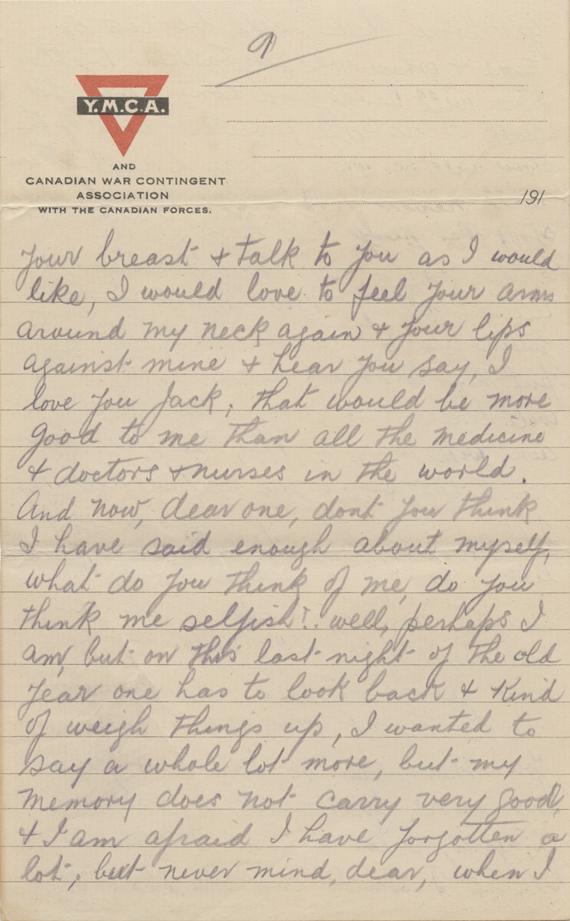 9
Y.M.C.A.
AND
CANADIAN WAR CONTINGENT
ASSOCIATION
WITH THE CANADIAN FORCES.
191
your breast & talk to you as I would
like, I would love to feel your arms
around my neck again & your lips
against mine & hear you say, I
love you Jack; that would be more
good to me than all the medicine
& doctors & nurses in the world.
And now, dear one, dont you think
I have said enough about myself,
what do you think of me, do you
think me selfish!. well, perhaps I
am, but on this last night of the old
year one has to look back & kind
of weigh things up, I wanted to
say a whole lot more, but my
memory does not carry very good,
& I am afraid I have forgotten a
lot, but never mind, dear, when I